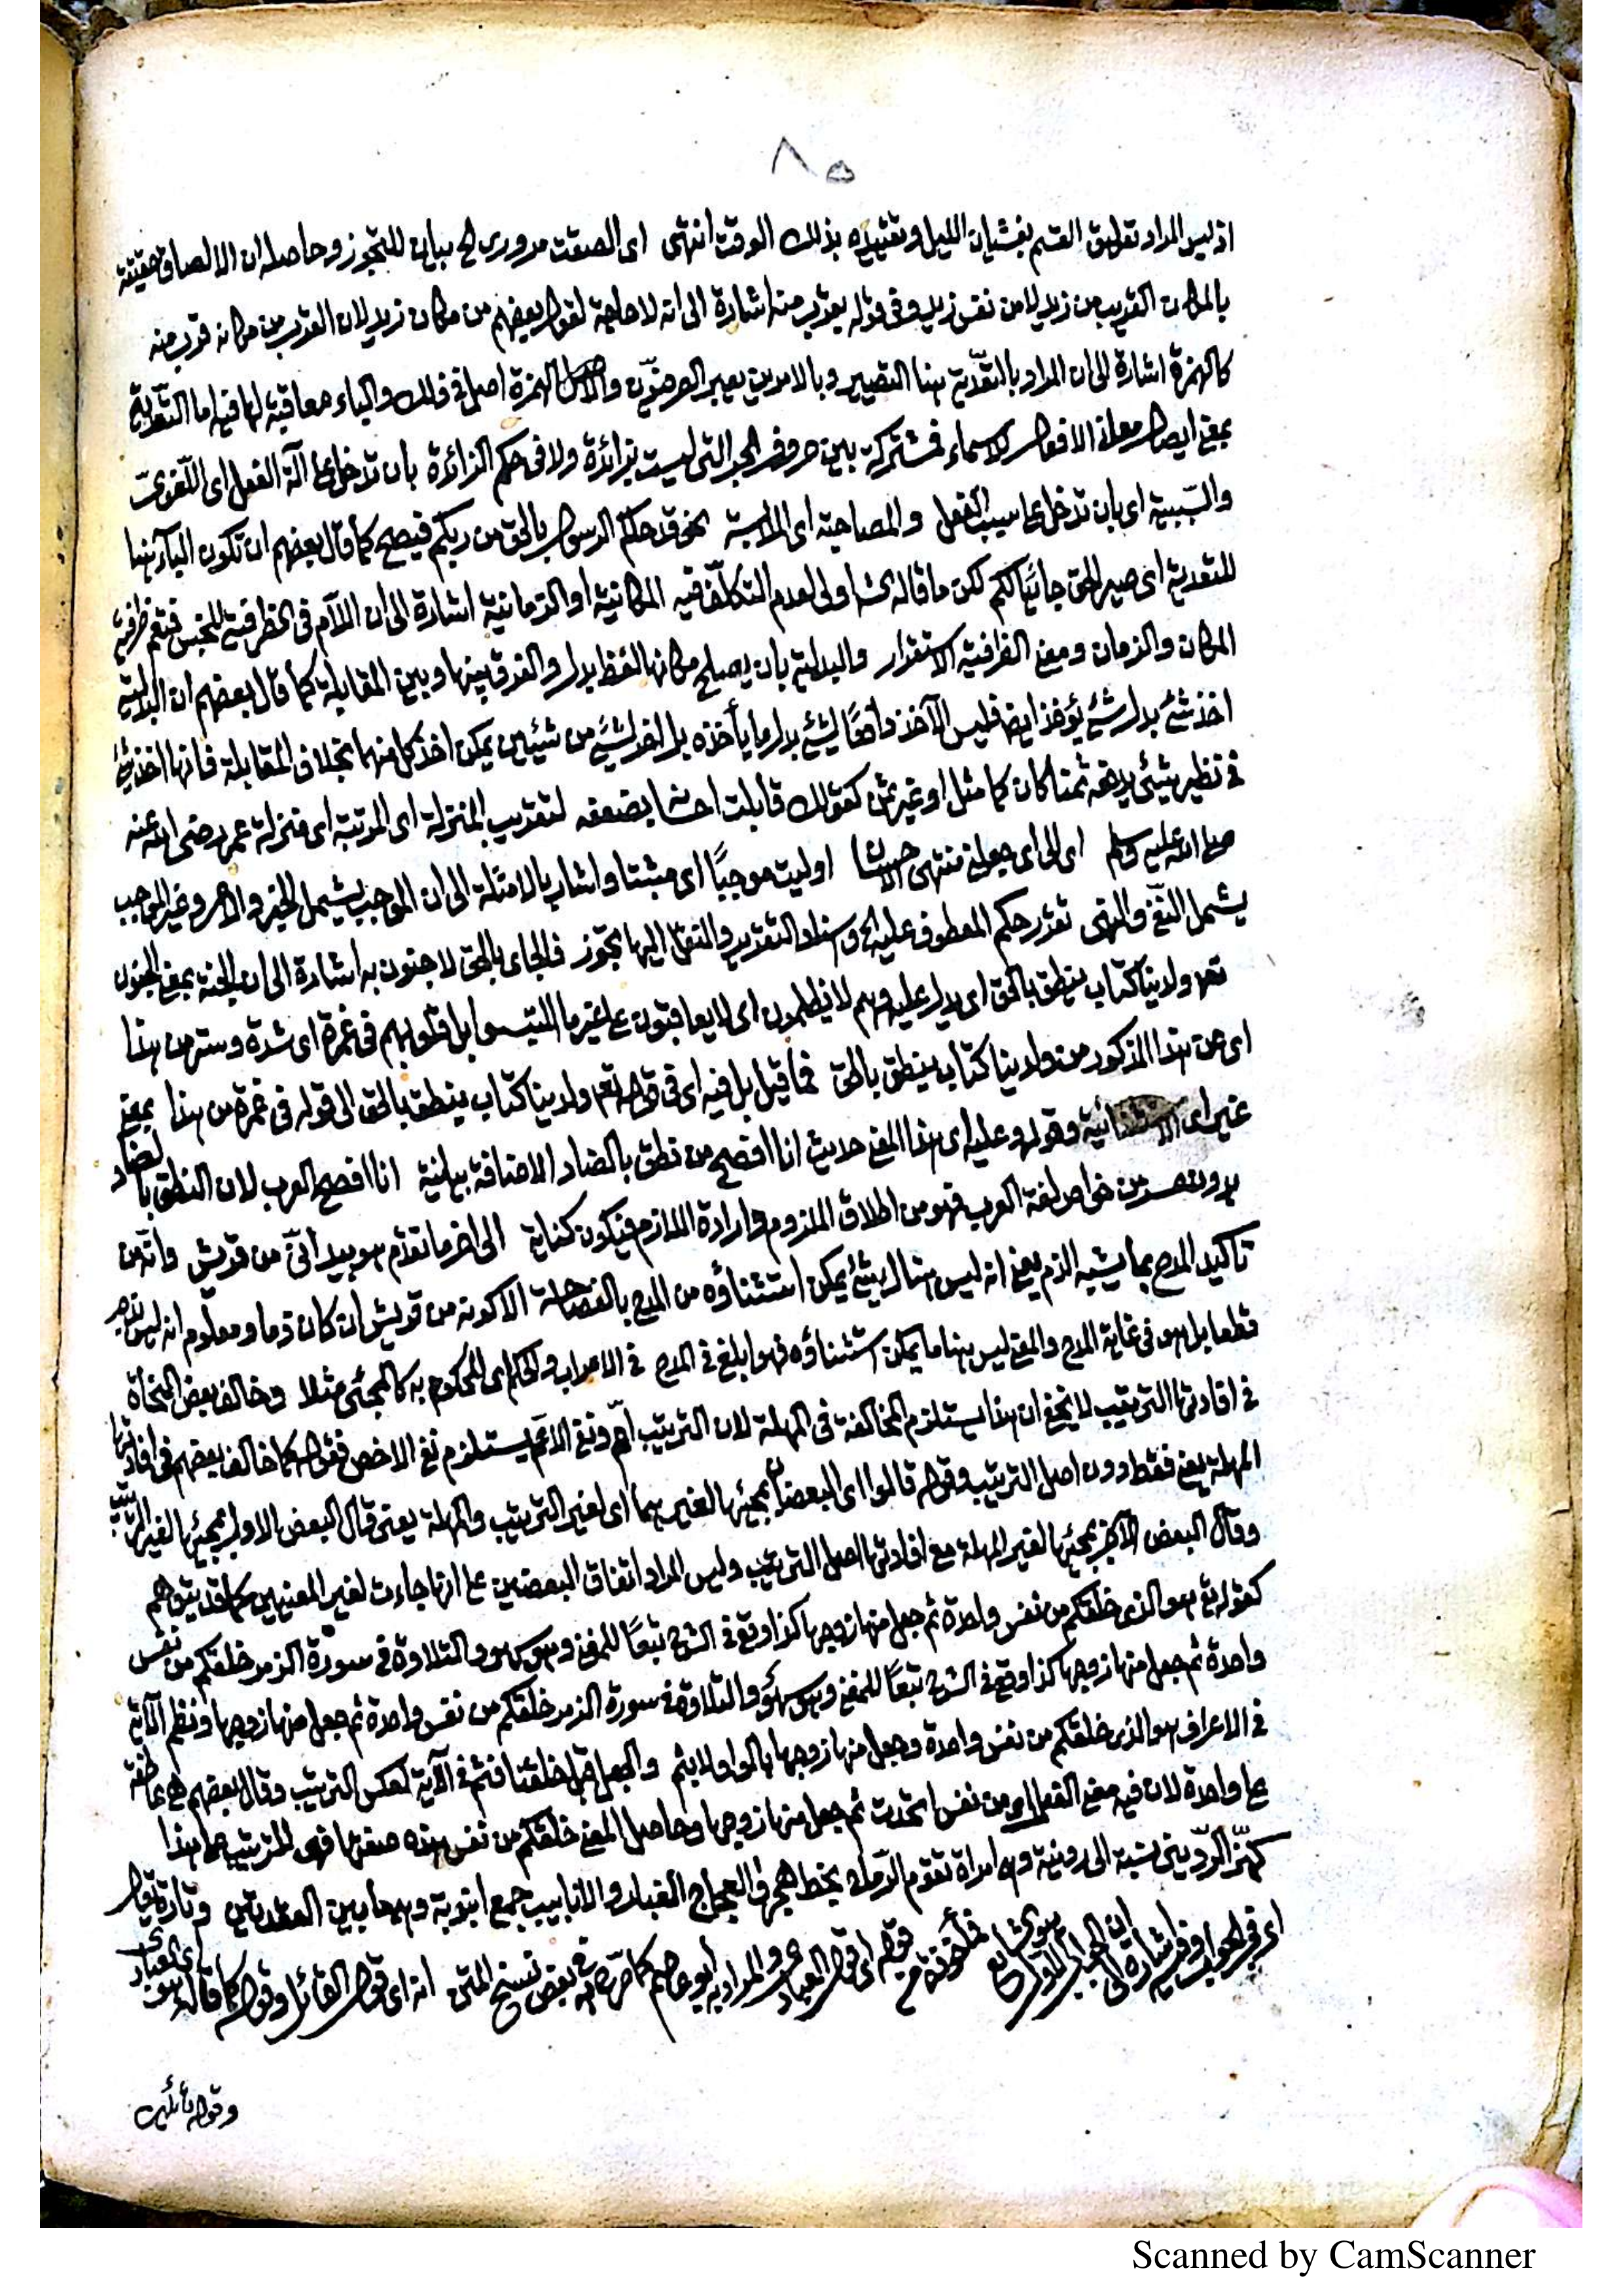 ٨٥
اذ ليس المراد تعليق القسم بغشيان الليل وتقييده بذلك الوقت انتهى اى الصقت مرورى الخ بيان للتجوز وحاصله ان الالصاق حقيقة
بالمكان القريب من زيد لا من نفس زيد وفى قوله يقرب منه اشارة الى انه لا حاجة لقول بعضهم من مكان زيد لان القرب من مكانه قرب منه
كالهمزة اشارة الى ان المراد بالتعدية هنا التصيير وبالامرين يعبر العرضيون والاصل الهمزة اصل فى ذلك والباء معاقبة لها فيه اما التعدية
بمعنى ايصال معانى الافعال للاسماء فمشتركة بين حروف الجر التى ليست بزائدة ولا فى حكم الزائدة بان تدخل على آلة الفعل اى اللغوى
والسببية اى بان تدخل على سبب الفعل والمصاحبة اى الملابسة نحو قد جاءكم الرسول بالحق من ربكم فيصح كما قال بعضهم ان تكون الباء هنا
للتعدية اى صير الحق جائيا لكم لكن ما قاله اولى لعدم التكلف فيه المكانية او الزمانية اشارة الى ان اللام فى الظرفية للجنس فتعم ظرفية
المكان والزمان ومعنى الظرفية الاستقرار والبدلية بان يصلح مكانها لفظ بدل والفرق بينها وبين المقابلة كما قال بعضهم ان البدلية
اخذ شئ بدل شئ يؤخذ ايضا فليس الآخذ دافعا لشئ بدل ما يأخذه بل اخذ لشئ من شيئين يمكن اخذ كل منهما بخلاف المقابلة فانها اخذ شئ
فى نظير شئ يدفعه ثمنا كان كما مثل او غير ثمن كقولك قابلت احسانه بضعفه لتقريب المنزلة اى المرتبة اى منزلة عمر رضى الله عنه
صلى الله عليه وسلم اى الى اى جعل منتهى اوليت موجبا اى مثبتا واشار بالامثلة الى ان الموجب يشمل الخبر والامر وغير الموجب
يشمل النفى والنهى تقرر حكم المعطوف عليه الخ واسناد التقرير والنقل اليها تجوز فالجائى بالحق لا جنون به اشارة الى ان الجنة بمعنى الجنون
نحو ولدينا كتاب ينطق بالحق اى يدل عليه وهم لا يظلمون اى لا يعاقبون على غير ما اكتسبوا بل قلوبهم فى غمرة اى شدة وستر من هذا
اى من هذا المذكور من ولدينا كتاب ينطق بالحق فما قبل بل فيه اى فى قوله تعالى ولدينا كتاب ينطق بالحق الى قوله فى غمرة من هذا بمعنى
غير اى الاستثنائية وقوله وعليه اى هذا المعنى حديث انا افصح من نطق بالضاد الاضافة بيانية انا افصح العرب لان النطق بالضاد
من خواص لغة العرب فهو من اطلاق الملزوم وارادة اللازم فيكون كناية الى اخر ما تقدم هو بيد انى من قريش وانه من
تاكيد المدح بما يشبه الذم يعنى انه ليس هناك شئ يمكن استثناؤه من المدح بالفصاحة الا كونه من قريش ان كان ذما ومعلوم انه ليس بذم
قطعا بل هو فى غاية المدح والمعنى ليس هنا ما يمكن استثناؤه فهو ابلغ فى المدح فى الاعراب والحكم اى المحكوم به كالمجئ مثلا وخالف بعض النحاة
فى افادتها الترتيب لا يخفى ان هذا يستلزم المخالفة فى المهلة لان الترتيب اعم ونفى الاعم يستلزم نفى الاخص فقوله كما خالف بعضهم فى افادتها
المهلة يعنى فقط دون اصل الترتيب وقوله قالوا اى البعضان بمجيئها لغيرهما اى لغير الترتيب والمهلة يعنى قال البعض الاول بمجيئها لغير الترتيب
وقال البعض الآخر بمجيئها لغير المهلة مع افادتها اصل الترتيب وليس المراد اتفاق البعضين على انها جاءت لغير المعنيين كما قد يتوهم
كقوله تعالى هو الذى خلقكم من نفس واحدة ثم جعل منها زوجها كذا وقع فى الشرح تبعا للمغنى وهو سهو والتلاوة فى سورة الزمر خلقكم من نفس
واحدة ثم جعل منها زوجها كذا وقع فى الشرح تبعا للمغنى وهو سهو والتلاوة فى سورة الزمر خلقكم من نفس واحدة ثم جعل منها زوجها ونظم الآية
فى الاعراف هو الذى خلقكم من نفس واحدة وجعل منها زوجها بالواو لا بثم والجعل قبل خلقنا فثم فى الآية لعكس الترتيب وقال بعضهم هى عاطفة
على واحدة لان فيه معنى الفعل اى من نفس اتحدت ثم جعل منها زوجها وحاصل المعنى خلقكم من نفس هذه صفتها فهى للترتيب على هذا
كهز الردينى نسبة الى ردينة وهى امراة تقوم الرماح بخط هجر والعجاج الغبار والانابيب جمع انبوبة وهى ما بين العقدتين وتارة يقول
اى فى الجواب وفيه اشارة الى ان الجواب الاول هو قولهم اى قول العباد والمراد به ابو عاصم كما صرح به فى بعض نسخ المتن انه اى قول القائل وقوله كما قاله هو اى العباد
وقوله قائلين